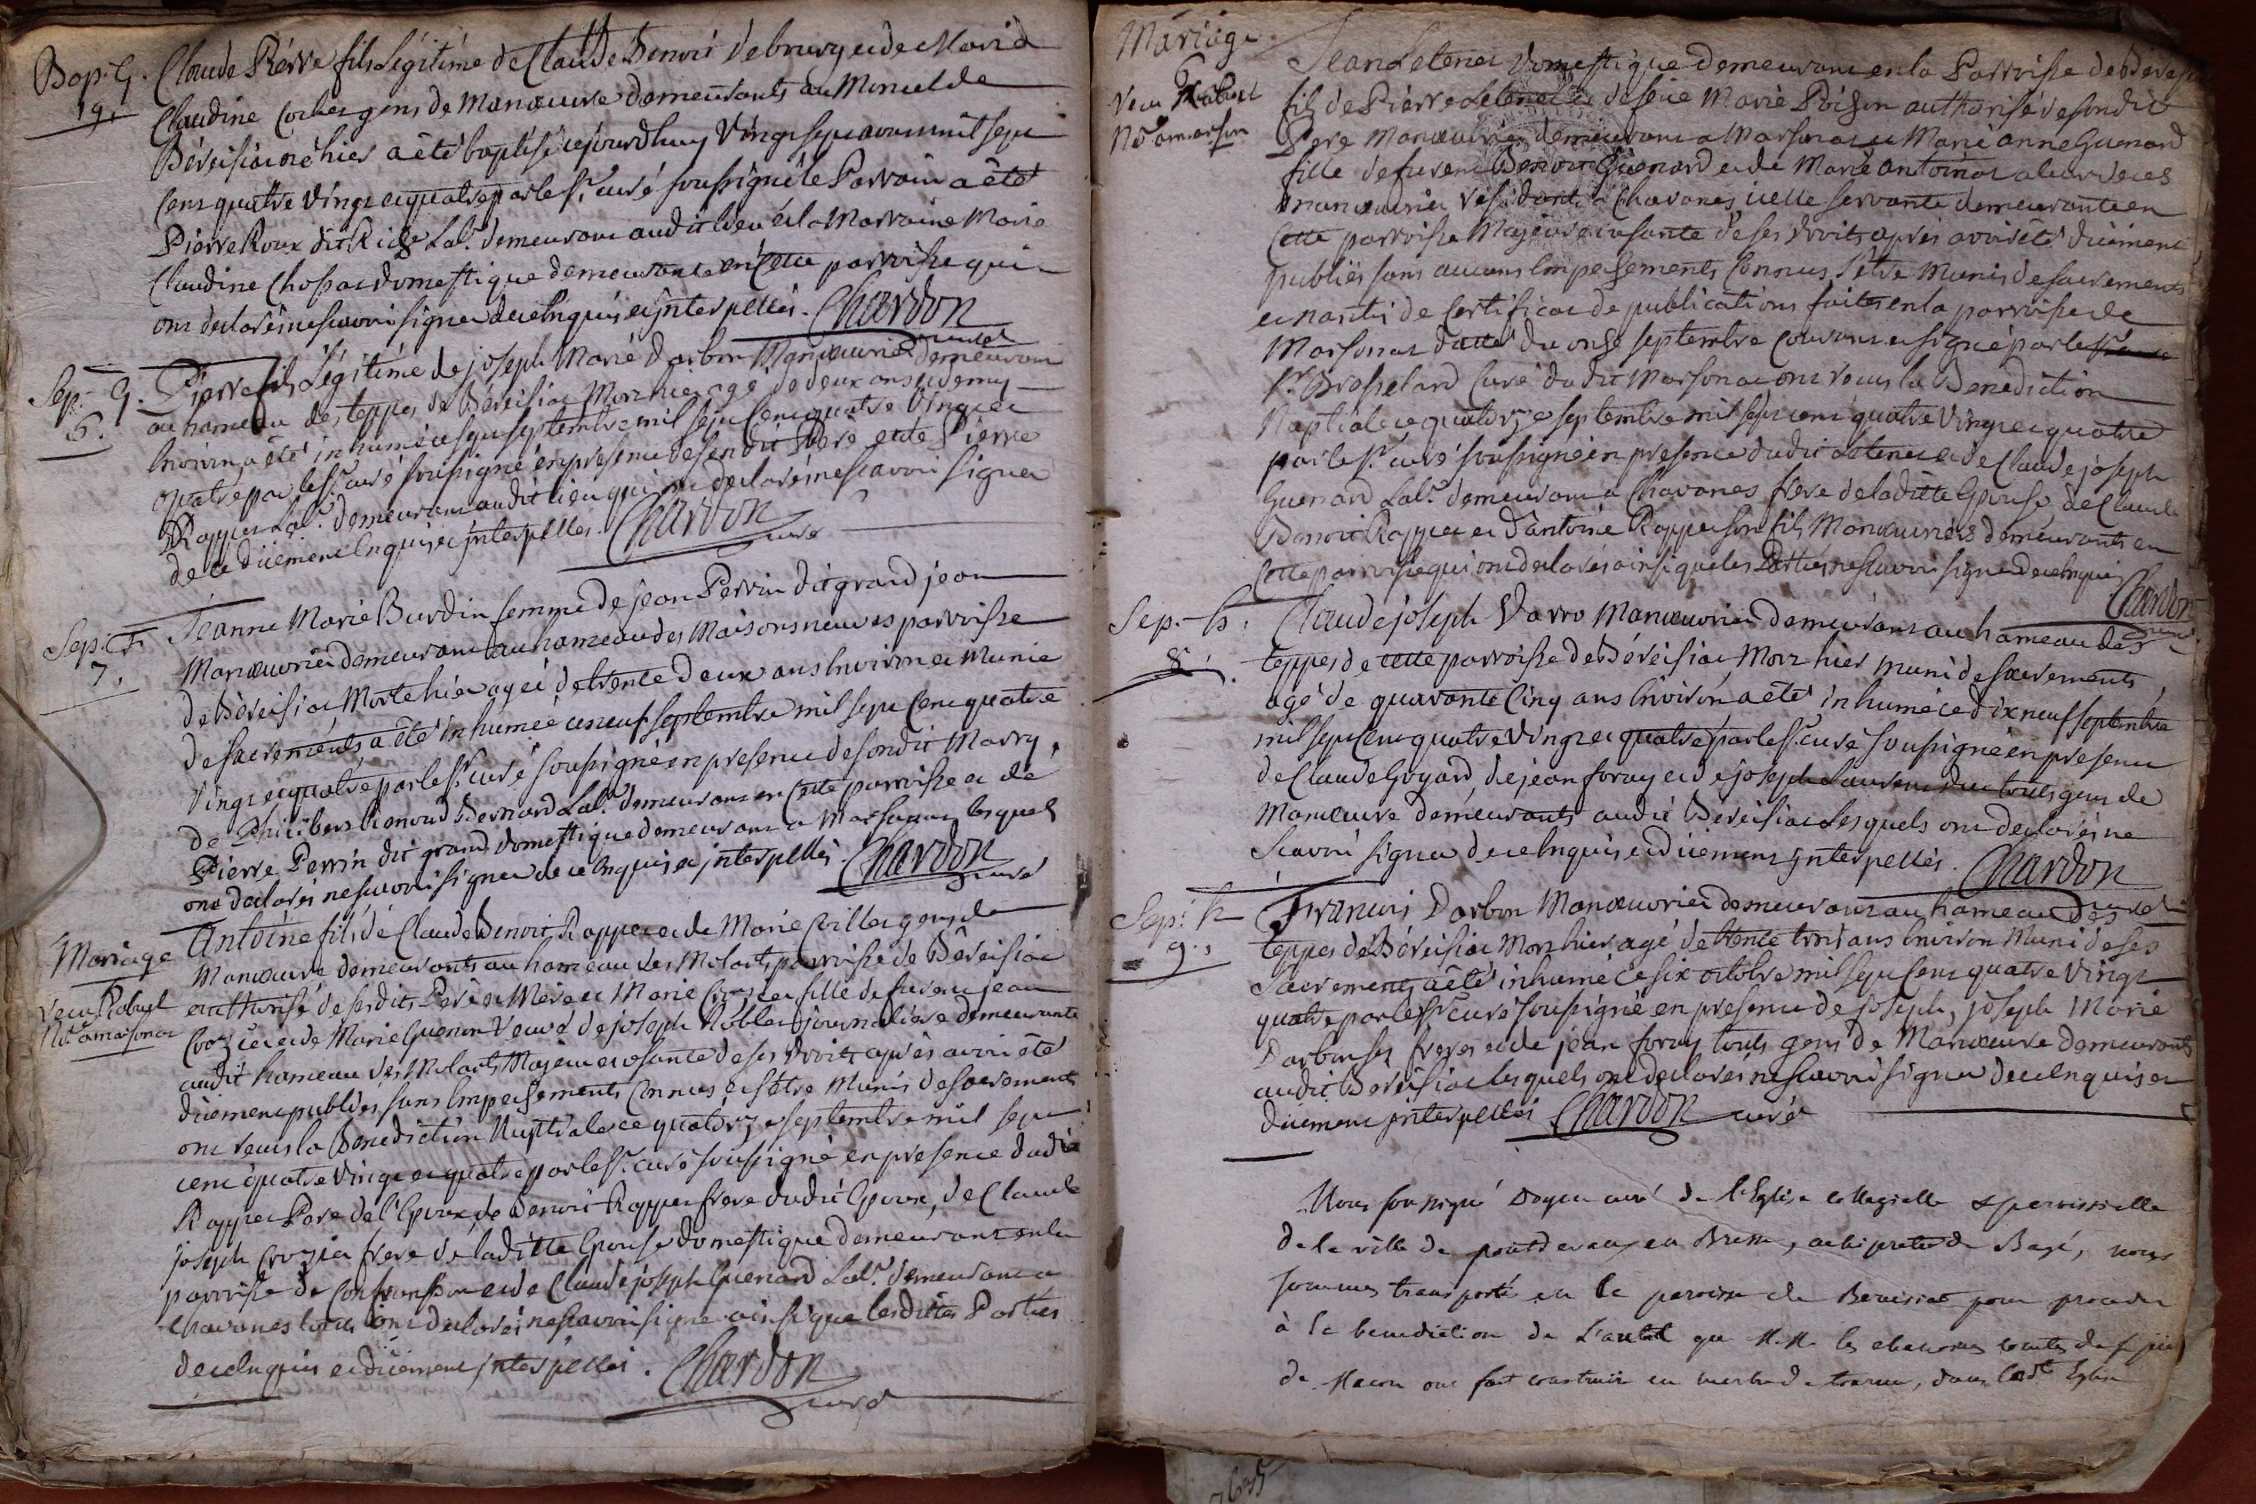 Bap. G.
19.
Claude Piérre fils Légitime de Claude Benoit Debruoy et de Marie
Claudine Corbet gens de Manœuvre demeurants au Moncel de
Béréisiat né hier a été baptisé cejourdhuy Vingt sept aoust mil sept
Cent quattre Vingt et quatre par le Sr. curé soussigné le Parrain a été
Pierre Roux dit Labr. demeurant audit lieu et la Marraine Marie
Claudine Chossat domestique demeurante en Cette parroisse qui
ont declarés ne scavoir signer de ce Enquis et jnterpellés. Chardon
curé
Sep. G.
6.
Pierre fils Légitime de joseph Marie Darbon Manœuvrier demeurant
au hameau des teppes de Béréisiat Mort hier agé de deux ans et demy
Environ a été inhumé ce sept septembre mil sept Cent quatre Vingt et
quatre par le Sr. curé soussigné en presence de sondit Pere et de Pierre
Rappet Labr. demeurant audit lieu qui ont declaré ne scavoir signer
de ce düement Enquis et jnterpellés. Chardon
curé
Sep. F.
7.
Jeanne Marie Burdin femme de jean Perrin dit grand jean
Manœuvrier demeurant au hameau des Maisons neuves parroisse
de Béréisiat Morte hier agée de trente deux ans Environ et Munie
de sacrements a été inhumée ce neuf septembre mil sept Cent quatre
Vingt et quatre par le Sr. curé soussigné en presence de sondit Marry,
de Philibert Bernard Labr. demeurant en Cette parroisse et de
Pierre Perrin dit grand domestique demeurant a Marsonnas lesquels
ont declarés ne scavoir signer de ce Enquis et jnterpellés Chardon
curé
Mariage
Antoine fils de Claude Benoit Rappet et de Marie Villet gens de
Manœuvre demeurants au hameau des Molarts parroisse de Béréisiat
authorisé de sesdits Pere et Mere et Marie Crozier fille de furent jean
Crozier et de Marie Guenon Veuve de joseph Noblet journaliere demeurante
audit hameau des Molarts Majeure et usante de ses droits après avoir été
düement publiés, sans Empechements Connus et s'être Munis de sacrements
ont recus la Benediction Nuptiale ce quatorze septembre mil sept
cent quatre Vingt et quatre par le Sr. curé soussigné en presence dudit
Rappet Pere de l'Epoux, de Benoit Rappet frere dudit Epoux, de Claude
joseph Crozier frere de laditte Epouse domestique demeurant en la
parroisse de Confrançon et de Claude joseph Guenard Labr. demeurant a
Chavanes touts ont declarés ne scavoir signer ainsi que lesdittes Parties
de ce Enquis et düement jnterpellés. Chardon
curé
Mariage
Jean Letenet Domestique demeurant en la Parroisse de Béréisiat
fils de Piérre Letenet et de feüe Marie Poison authorisé de sondit
Pere Manœuvrier demeurant a Marsonas et Marie Anne Guenard
fille de furent Benoit Guenard et de Marie Antoinat a leur deces
manœuvrier residants a Chavanes, icelle servante demeurante en
Cette parroisse Majeure et usante de ses droits après avoir été düement
publiés sans aucuns Empechements Connus, s'être Munis de sacrements
et nantis de Certificat de publications faites en la parroisse de
Marsonas datté du onze septembre Courant et signé par le
Sr. Brosselard Curé dudit Marsonas ont recus la Benediction
Nuptiale ce quatorze septembre mil sept cent quatre Vingt et quatre
par le Sr. curé soussigné en presence dudit Letenet et de Claude joseph
Guenard Labr. demeurant a Chavanes frere de laditte Epouse, de Claude
Benoit Rappet et d'antoine Rappet son fils Manœuvriers demeurants en
Cette parroisse qui ont declarés ainsi que les Parties ne scavoir signer de ce Enquis
Chardon
curé
Sep. h.
8.
Claude joseph Varro Manœuvrier demeurant au hameau des
teppes de cette parroisse de Béréisiat Mort hier muni de sacrements
agé de quarante Cinq ans Environ a été inhumé ce dix neuf septembre
mil sept Cent quatre Vingt et quatre par le Sr. curé soussigné en presence
de Claude Goyard, de jean foray et de joseph Laurent touts gens de
Manœuvre demeurants audit Béréisiat Lesquels ont declarés ne
Scavoir signer de ce Enquis et düement jnterpellés. Chardon
curé
Sep. h
9.
Francois Darbon Manœuvrier demeurant au hameau des
teppes de Béréisiat Mort hier agé de trente trois ans Environ Muni de ses
Sacrements a été inhumé ce six octobre mil sept Cent quatre Vingt
quatre par le Sr. curé soussigné en presence de joseph, joseph Marie
Darbon ses freres et de jean foray touts gens de Manœuvre demeurants
audit Béréisiat lesquels ont declarés ne scavoir signer de ce Enquis et
düement jnterpellés Chardon curé
Nous soussigné Doyen curé de l'Eglise collegialle & paroissialle
de la ville de pontdevaux en Bresse, archipretre de Bagé, nous
sommes transporté en la paroisse de Bereisiat pour proceder
à la benediction de L'autel que M.M. les chanoines comtes de St pierre
de Macon ont fait construire en marbre, dans ladte Eglise